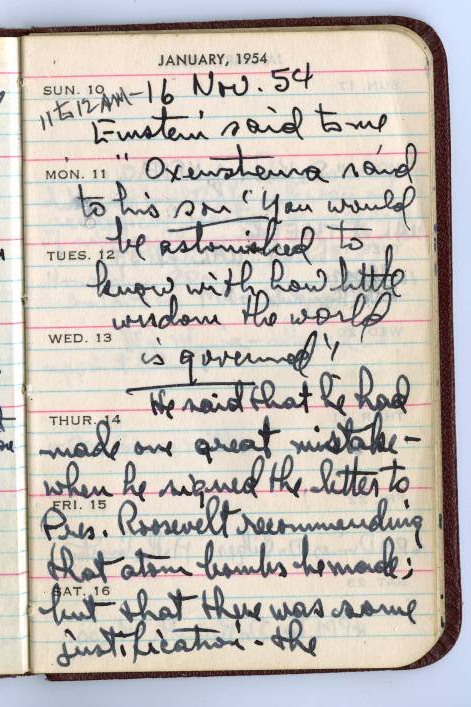 JANUARY, 1954
SUN. 10
11 to 12 AM - 16 Nov. 54
Einstein said to me
MON. 11
"Oxenstierna said
to his son 'You would
be astonished to
TUES. 12
know with how little
wisdom the world
WED. 13
is governed'"
He said that he had
THUR. 14
made one great mistake—
when he signed the letter to
FRI. 15
Pres. Roosevelt recommending
that atom bombs be made;
SAT. 16
but that there was some
justification - the